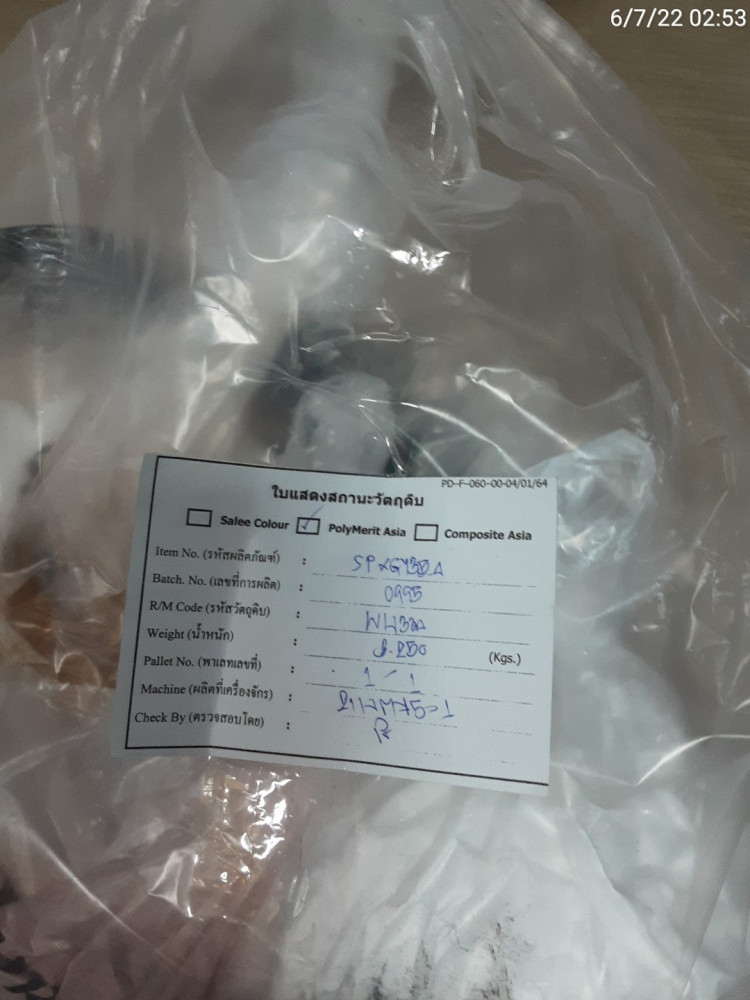 6/7/22 02:53
PD-F-060-00-04/01/64
ใบแสดงสถานะวัตถุดิบ
Salee Colour PolyMerit Asia Composite Asia
Item No. (รหัสผลิตภัณฑ์) :
Batch. No. (เลขที่การผลิต) : 0995
R/M Code (รหัสวัตถุดิบ) :
Weight (น้ำหนัก) : (Kgs.)
Pallet No. (พาเลทเลขที่) : 1 / 1
Machine (ผลิตที่เครื่องจักร) :
Check By (ตรวจสอบโดย) :